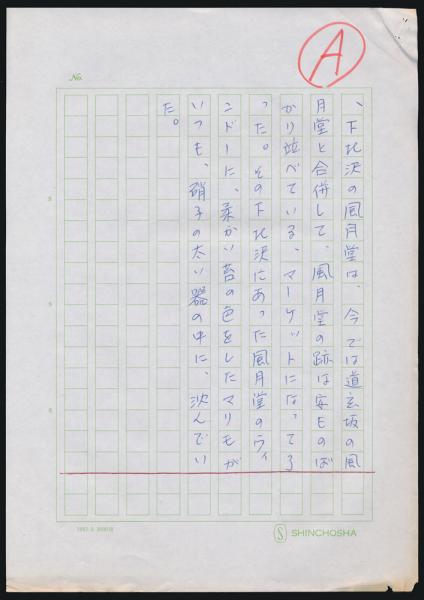 A
No.
、下北沢の風月堂は、今では道玄坂の風
月堂と合併して、風月堂の跡は安ものば
かり並べている、マーケットになってる
った。その下北沢にあった風月堂のウィ
ンドーに、柔かい苔の色をしたマリモが
いつも、硝子の太い器の中に、沈んでい
た。
S SHINCHOSHA